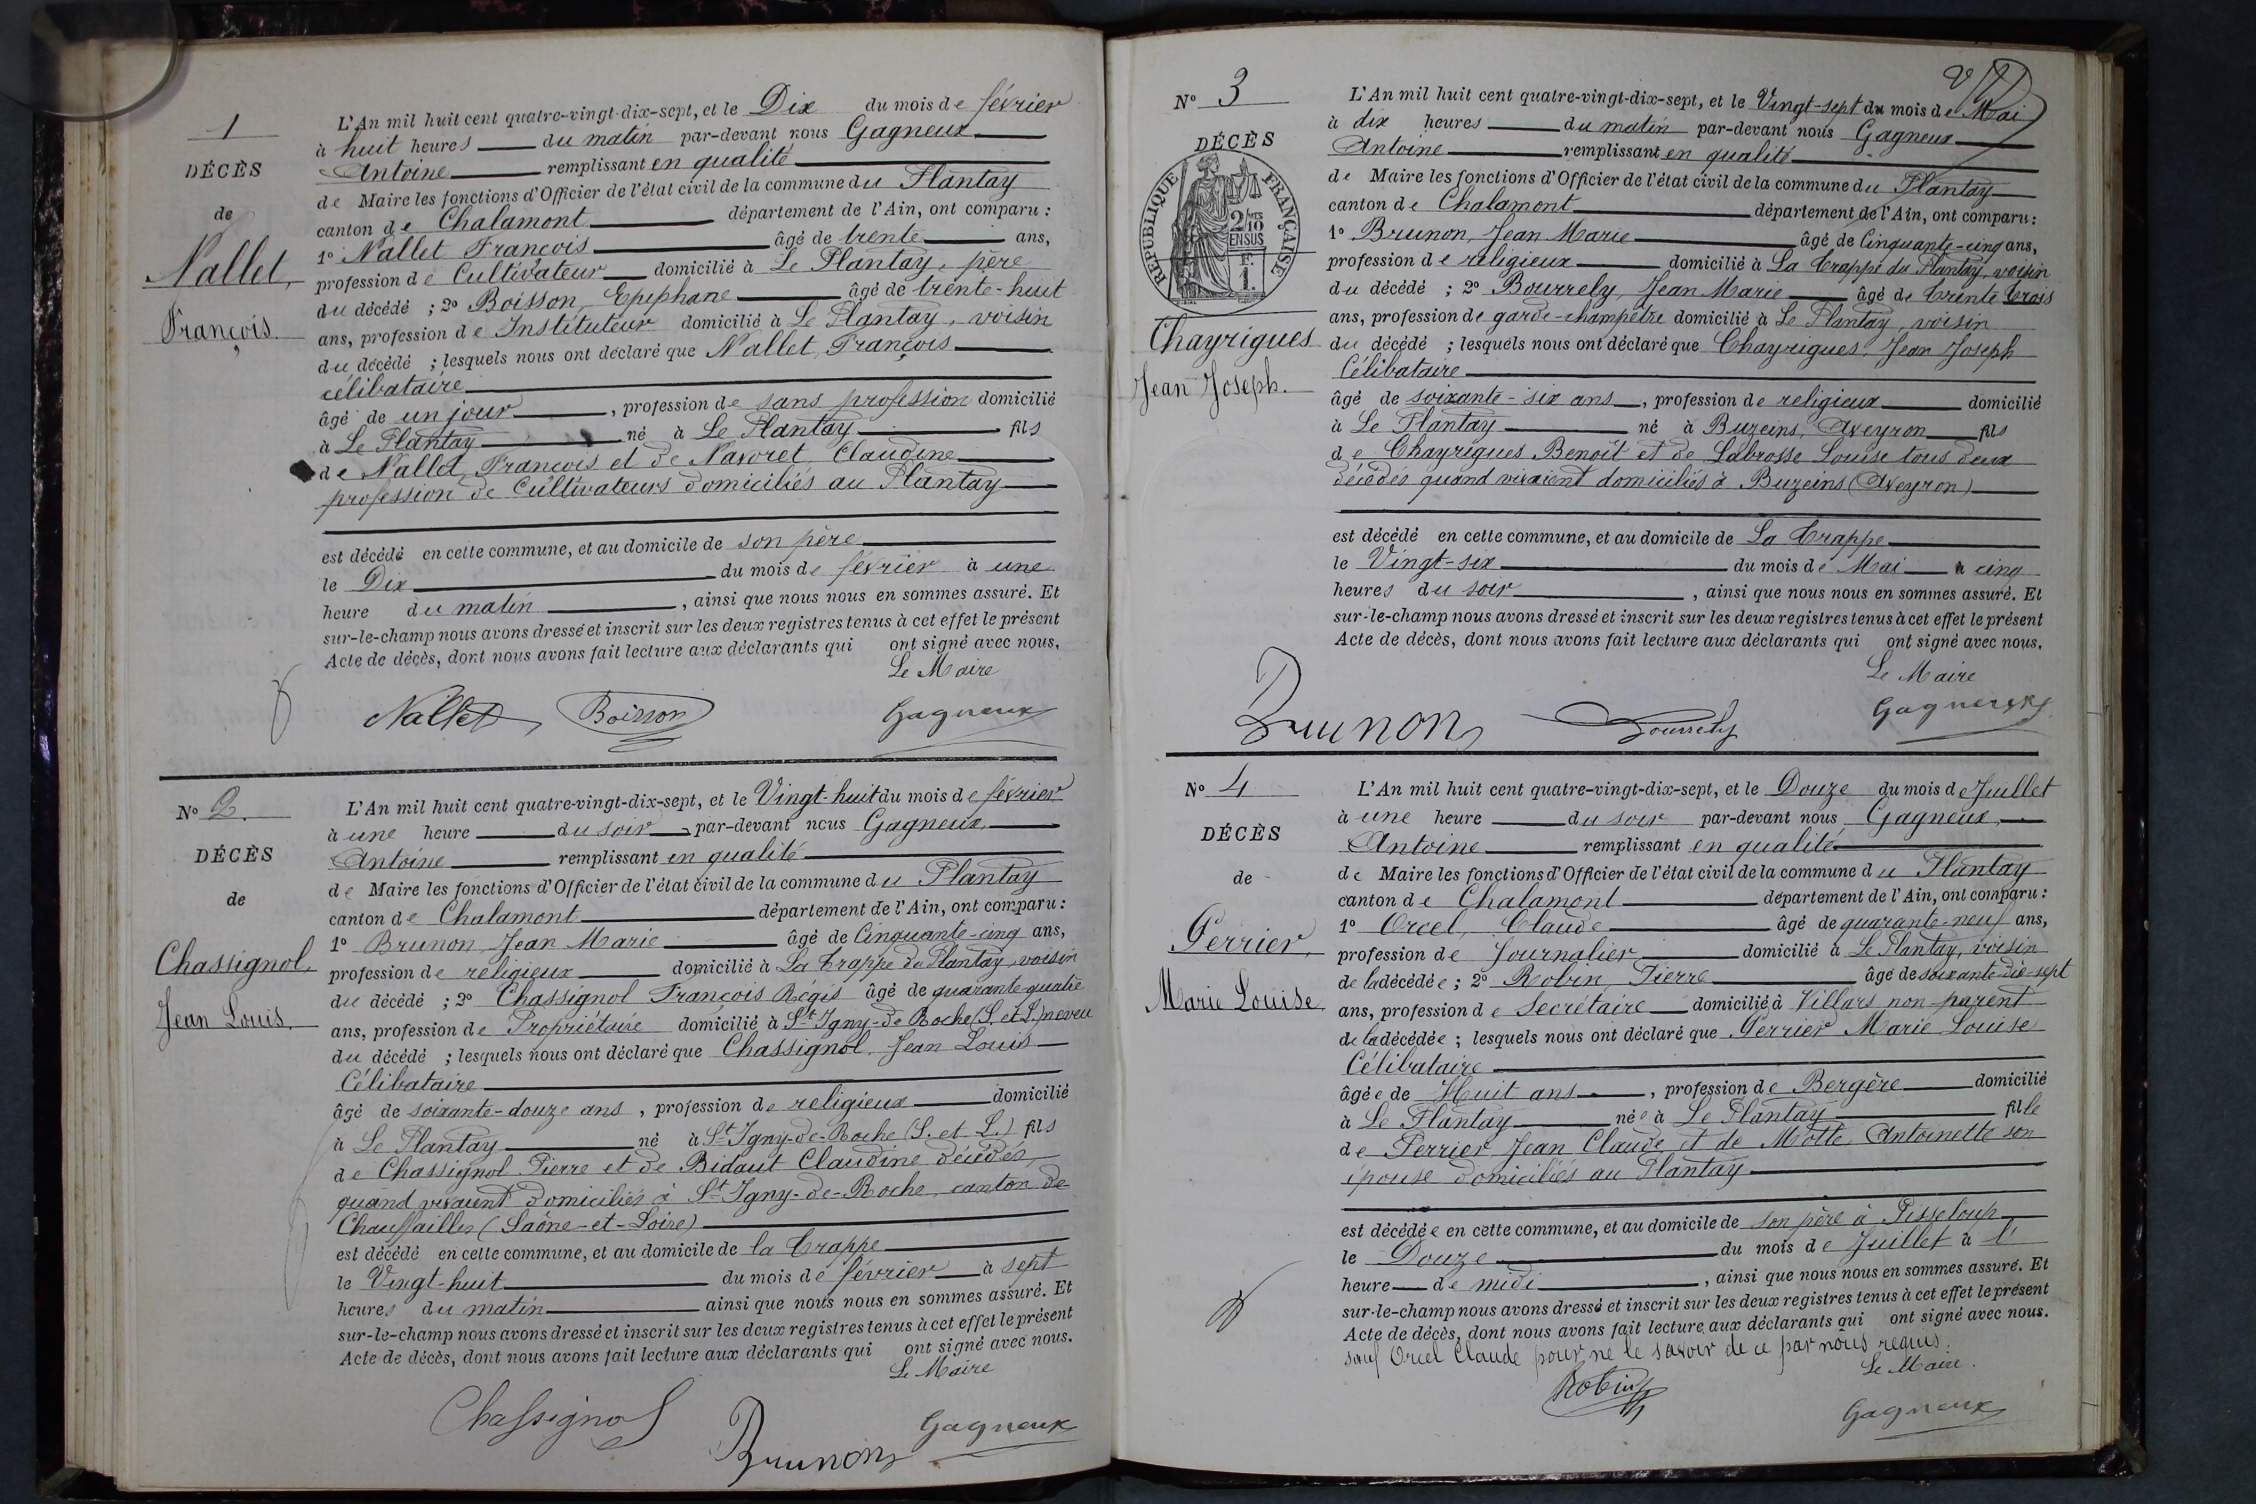 1
DÉCÈS
de
Nallet,
François.
L'An mil huit cent quatre-vingt-dix-sept, et le Dix du mois de février
à huit heures du matin par-devant nous Gagneux
Antoine remplissant en qualité
de Maire les fonctions d'Officier de l'état civil de la commune du Plantay
canton de Chalamont département de l'Ain, ont comparu :
1º Nallet François âgé de trente ans,
profession de Cultivateur domicilié à Le Plantay, père
du décédé ; 2º Boisson, Epiphane âgé de trente-huit
ans, profession de Instituteur domicilié à Le Plantay, voisin
du décédé ; lesquels nous ont déclaré que Nallet, François
célibataire
âgé de un jour, profession de sans profession domicilié
à Le Plantay né à Le Plantay fils
de Nallet, François et de Navoret, Claudine
profession de Cultivateurs domiciliés au Plantay
est décédé en cette commune, et au domicile de son père
le Dix du mois de février à une
heure du matin, ainsi que nous nous en sommes assuré. Et
sur-le-champ nous avons dressé et inscrit sur les deux registres tenus à cet effet le présent
Acte de décès, dont nous avons fait lecture aux déclarants qui ont signé avec nous.
Le Maire
Nallet Boisson Gagneux
Nº 2.
DÉCÈS
de
Chassignol,
Jean Louis.
L'An mil huit cent quatre-vingt-dix-sept, et le Vingt-huit du mois de février
à une heure du soir par-devant nous Gagneux
Antoine remplissant en qualité
de Maire les fonctions d'Officier de l'état civil de la commune du Plantay
canton de Chalamont département de l'Ain, ont comparu :
1º Brunon, Jean Marie âgé de Cinquante-cinq ans,
profession de religieux domicilié à La Trappe du Plantay, voisin
du décédé ; 2º Chassignol François Régis âgé de quarante-quatre
ans, profession de Propriétaire domicilié à St Igny-de-Roche (S. et L.) neveu
du décédé ; lesquels nous ont déclaré que Chassignol, Jean Louis
Célibataire
âgé de soixante-douze ans, profession de religieux domicilié
à Le Plantay né à St Igny-de-Roche (S. et L.) fils
de Chassignol Pierre et de Bidaut Claudine décédés,
quand vivaient domiciliés à St Igny-de-Roche, canton de
Chauffailles (Saône-et-Loire)
est décédé en cette commune, et au domicile de la Trappe
le Vingt-huit du mois de février à sept
heures du matin ainsi que nous nous en sommes assuré. Et
sur-le-champ nous avons dressé et inscrit sur les deux registres tenus à cet effet le présent
Acte de décès, dont nous avons fait lecture aux déclarants qui ont signé avec nous.
Le Maire
Chassignol Brunon Gagneux
Nº 3
DÉCÈS
RÉPUBLIQUE FRANÇAISE
2/10 EN SUS
F.
1.
Chayrigues
Jean Joseph.
L'An mil huit cent quatre-vingt-dix-sept, et le Vingt-sept du mois de Mai
à dix heures du matin par-devant nous Gagneux
Antoine remplissant en qualité
de Maire les fonctions d'Officier de l'état civil de la commune du Plantay
canton de Chalamont département de l'Ain, ont comparu :
1º Brunon, Jean Marie âgé de Cinquante-cinq ans,
profession de religieux domicilié à La Trappe du Plantay, voisin
du décédé ; 2º Bourrely, Jean Marie âgé de trente trois
ans, profession de garde-champêtre domicilié à Le Plantay, voisin
du décédé ; lesquels nous ont déclaré que Chayrigues, Jean Joseph
Célibataire
âgé de soixante-six ans, profession de religieux domicilié
à Le Plantay né à Buzeins, Aveyron fils
de Chayrigues Benoît et de Labrosse Louise tous deux
décédés quand vivaient domiciliés à Buzeins (Aveyron)
est décédé en cette commune, et au domicile de La Trappe
le Vingt-six du mois de Mai à cinq
heures du soir, ainsi que nous nous en sommes assuré. Et
sur-le-champ nous avons dressé et inscrit sur les deux registres tenus à cet effet le présent
Acte de décès, dont nous avons fait lecture aux déclarants qui ont signé avec nous.
Le Maire
Brunon Bourrely Gagneux
Nº 4
DÉCÈS
de
Perrier,
Marie Louise
L'An mil huit cent quatre-vingt-dix-sept, et le Douze du mois de Juillet
à une heure du soir par-devant nous Gagneux,
Antoine remplissant en qualité
de Maire les fonctions d'Officier de l'état civil de la commune du Plantay
canton de Chalamont département de l'Ain, ont comparu :
1º Orcel, Claude âgé de quarante-neuf ans,
profession de Journalier domicilié à Le Plantay, voisin
de la décédée ; 2º Robin, Pierre âgé de soixante-dix-sept
ans, profession de Secrétaire domicilié à Villars non-parent
de la décédée ; lesquels nous ont déclaré que Perrier Marie Louise
Célibataire
âgée de Huit ans, profession de Bergère domicilié
à Le Plantay née à Le Plantay fille
de Perrier Jean Claude et de Motte Antoinette son
épouse domiciliés au Plantay
est décédée en cette commune, et au domicile de son père à Pisseloup
le Douze du mois de Juillet à l'
heure de midi, ainsi que nous nous en sommes assuré. Et
sur-le-champ nous avons dressé et inscrit sur les deux registres tenus à cet effet le présent
Acte de décès, dont nous avons fait lecture aux déclarants qui ont signé avec nous.
sauf Orcel Claude pour ne le savoir de ce par nous requis.
Le Maire.
Robin Gagneux